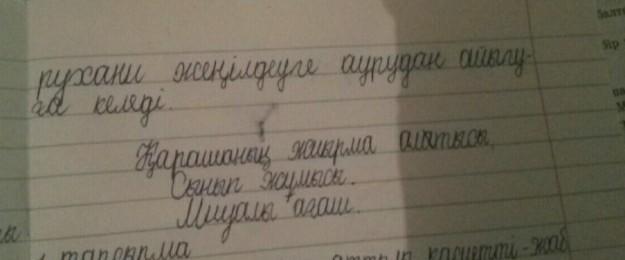 рухани жеңілдеуге аурудан айығу-
ға келеді.
Қарашаның жиырма алтысы.
Сынып жұмысы.
Миуалы ағаш.
тапсырма
қасиетті - жаб